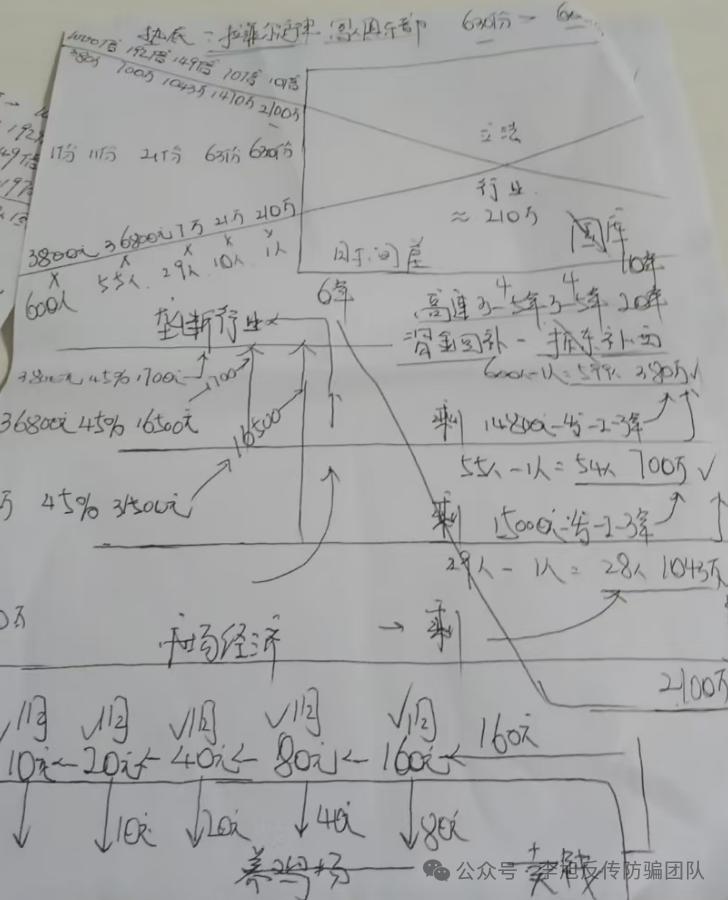 630份
1000倍 192倍 149倍 70倍 10倍
380万 700万 1043万 1470万 2100万
1份 11份 21份 63份 630份
立法
行业
≈210万
国库
3800元 36800元 7万 21万 210万
时间差
600人 55人 29人 10人 1人
10年
6年
垄断行业
高速 3-5年 3-5年 20年
资金回补
3800元 45% 1700元
1700
600人-1人=599人 380万√
36800元 45% 16500元
16500
剩 14800元 2-3年
55人-1人=54人 700万√
万 45% 31500元
剩 15000元 2-3年
29人-1人=28人 1043万
市场经济 → 剩
2100万
√1月 √1月 √1月 √1月 √1月
10元 20元 40元 80元 160元 160元
10元 20元 40元 80元
市场
公众号·李旭反传防骗团队